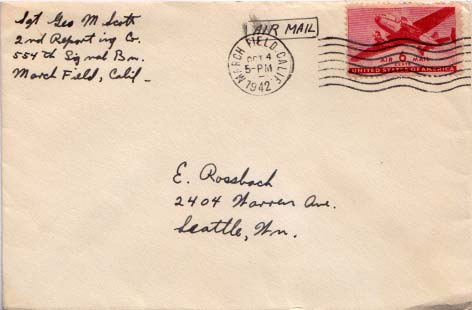 Sgt Geo M Scott
2nd Reporting Co.
554th Signal Bn.
March Field, Calif
AIR MAIL
MARCH FIELD, CALIF.
OCT 4
5-PM
1942
AIR 6 MAIL
CENTS
UNITED STATES OF AMERICA
E. Rossbach
2404 Warren Ave.
Seattle, Wn.